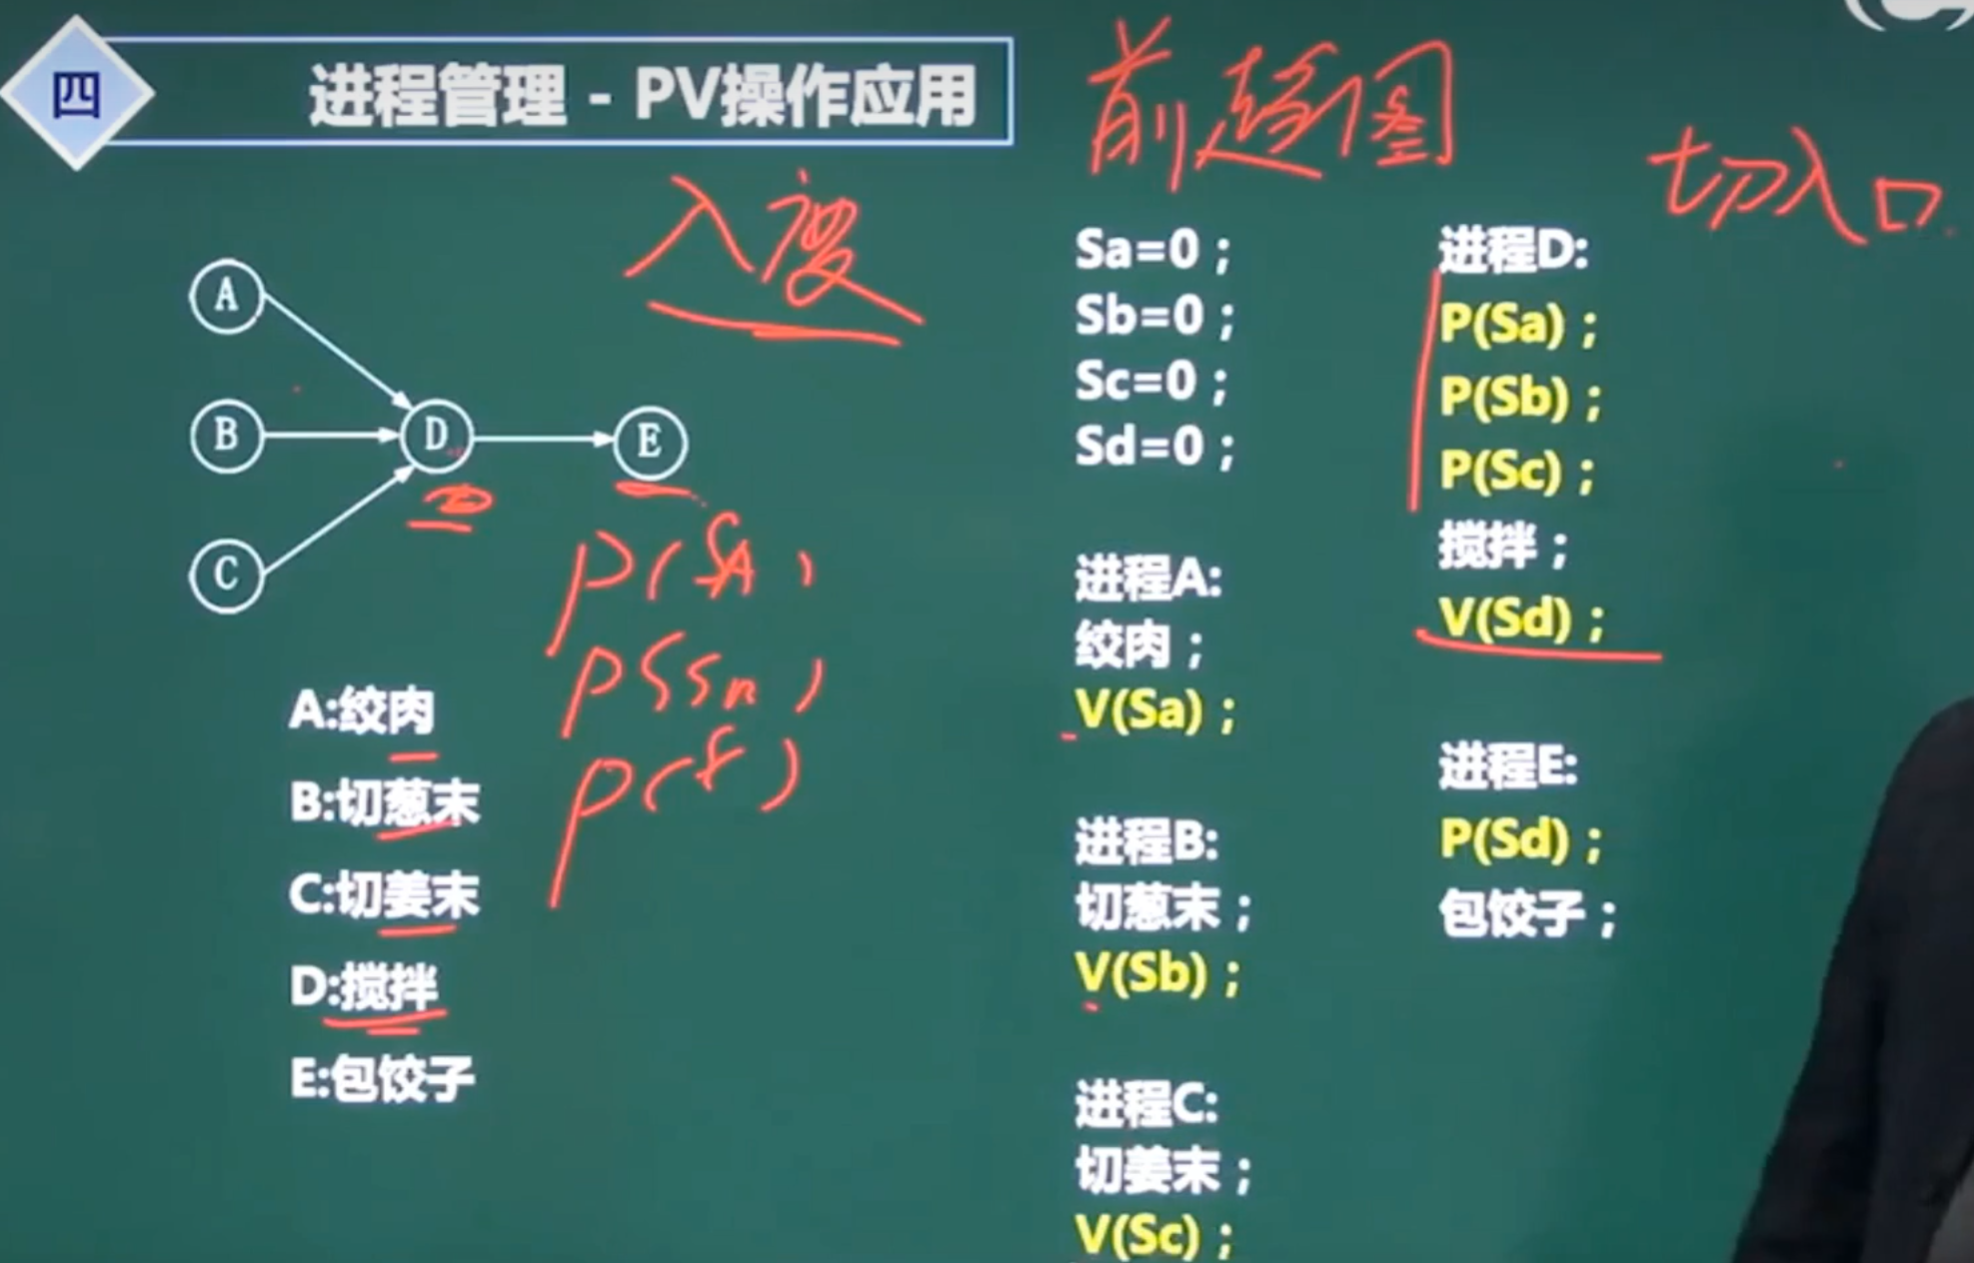 四
进程管理 - PV操作应用
前趋图
切入口
入度
A
B
C
D
E
P(SA)
P(
P(
A:绞肉
B:切葱末
C:切姜末
D:搅拌
E:包饺子
Sa=0；
Sb=0；
Sc=0；
Sd=0；
进程A:
绞肉；
V(Sa)；
进程B:
切葱末；
V(Sb)；
进程C:
切姜末；
V(Sc)；
进程D:
P(Sa)；
P(Sb)；
P(Sc)；
搅拌；
V(Sd)；
进程E:
P(Sd)；
包饺子；